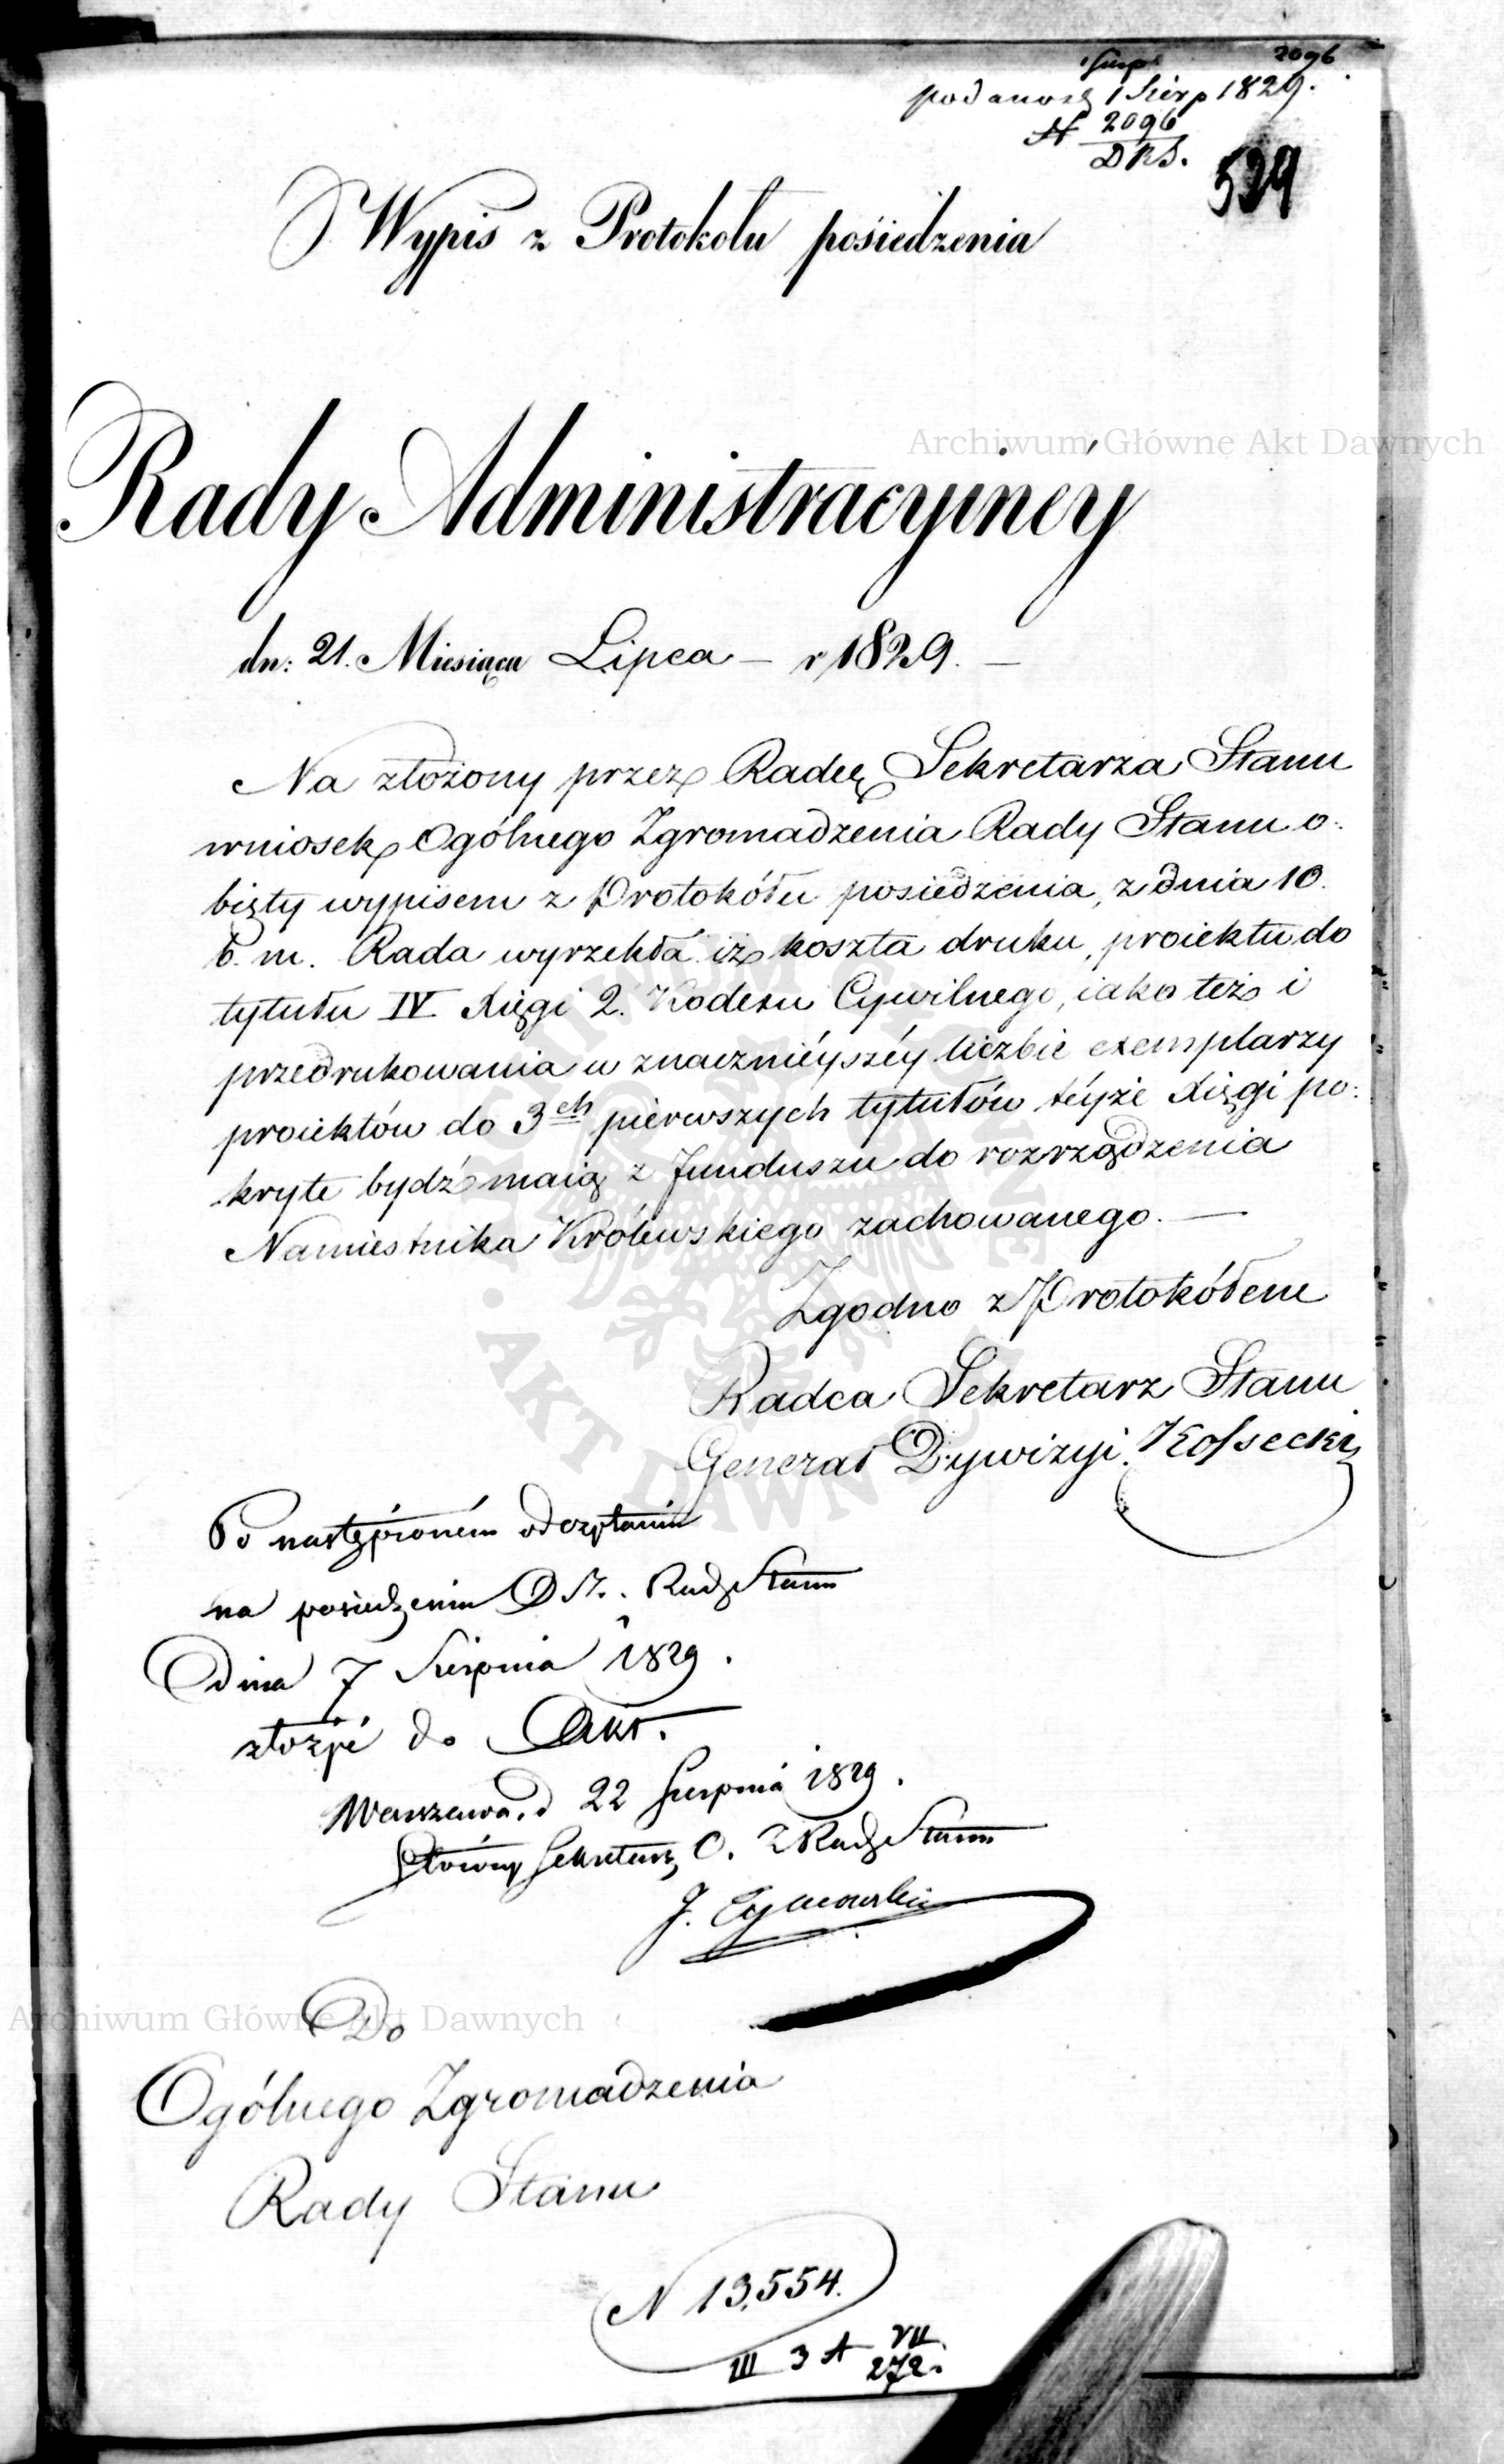 2096
podano d. 1 Sierp 1829.
N 2096
DRS.
529
Wypis z Protokołu posiedzenia
Archiwum Główne Akt Dawnych
Rady Administracyiney
dn: 21. Miesiąca Lipca – r 1829. –
Na złożony przez Radcę Sekretarza Stanu
wniosek Ogólnego Zgromadzenia Rady Stanu o:
bięty wypisem z Protokółu posiedzenia, z dnia 10.
b. m. Rada wyrzekła iż koszta druku, proiektu do
tytułu IV Xięgi 2. Kodexu Cywilnego, iako też i
przedrukowania w znacznieyszéy liczbie exemplarzy
proiektów do 3ch pierwszych tytułów téyże Xięgi po:
kryte bydź maią z funduszu do rozrządzenia
Namiestnika Królewskiego zachowanego. —
Zgodno z Protokółem
Radca Sekretarz Stanu
Generał Dywizyi Kossecki
Po nastąpioném odczytaniu
na posiedzeniu Rady Stanu
Dnia 7 Sierpnia 1829.
złożyć do Akt.
Warszawa d 22 Sierpnia 1829.
Główny Sekretarz O. Z Rady Stanu
J.
Archiwum Główne Akt Dawnych
Do
Ogólnego Zgromadzenia
Rady Stanu
N 13,554.
III 3 A VII
272.
ARCHIWUM GŁÓWNE AKT DAWNYCH